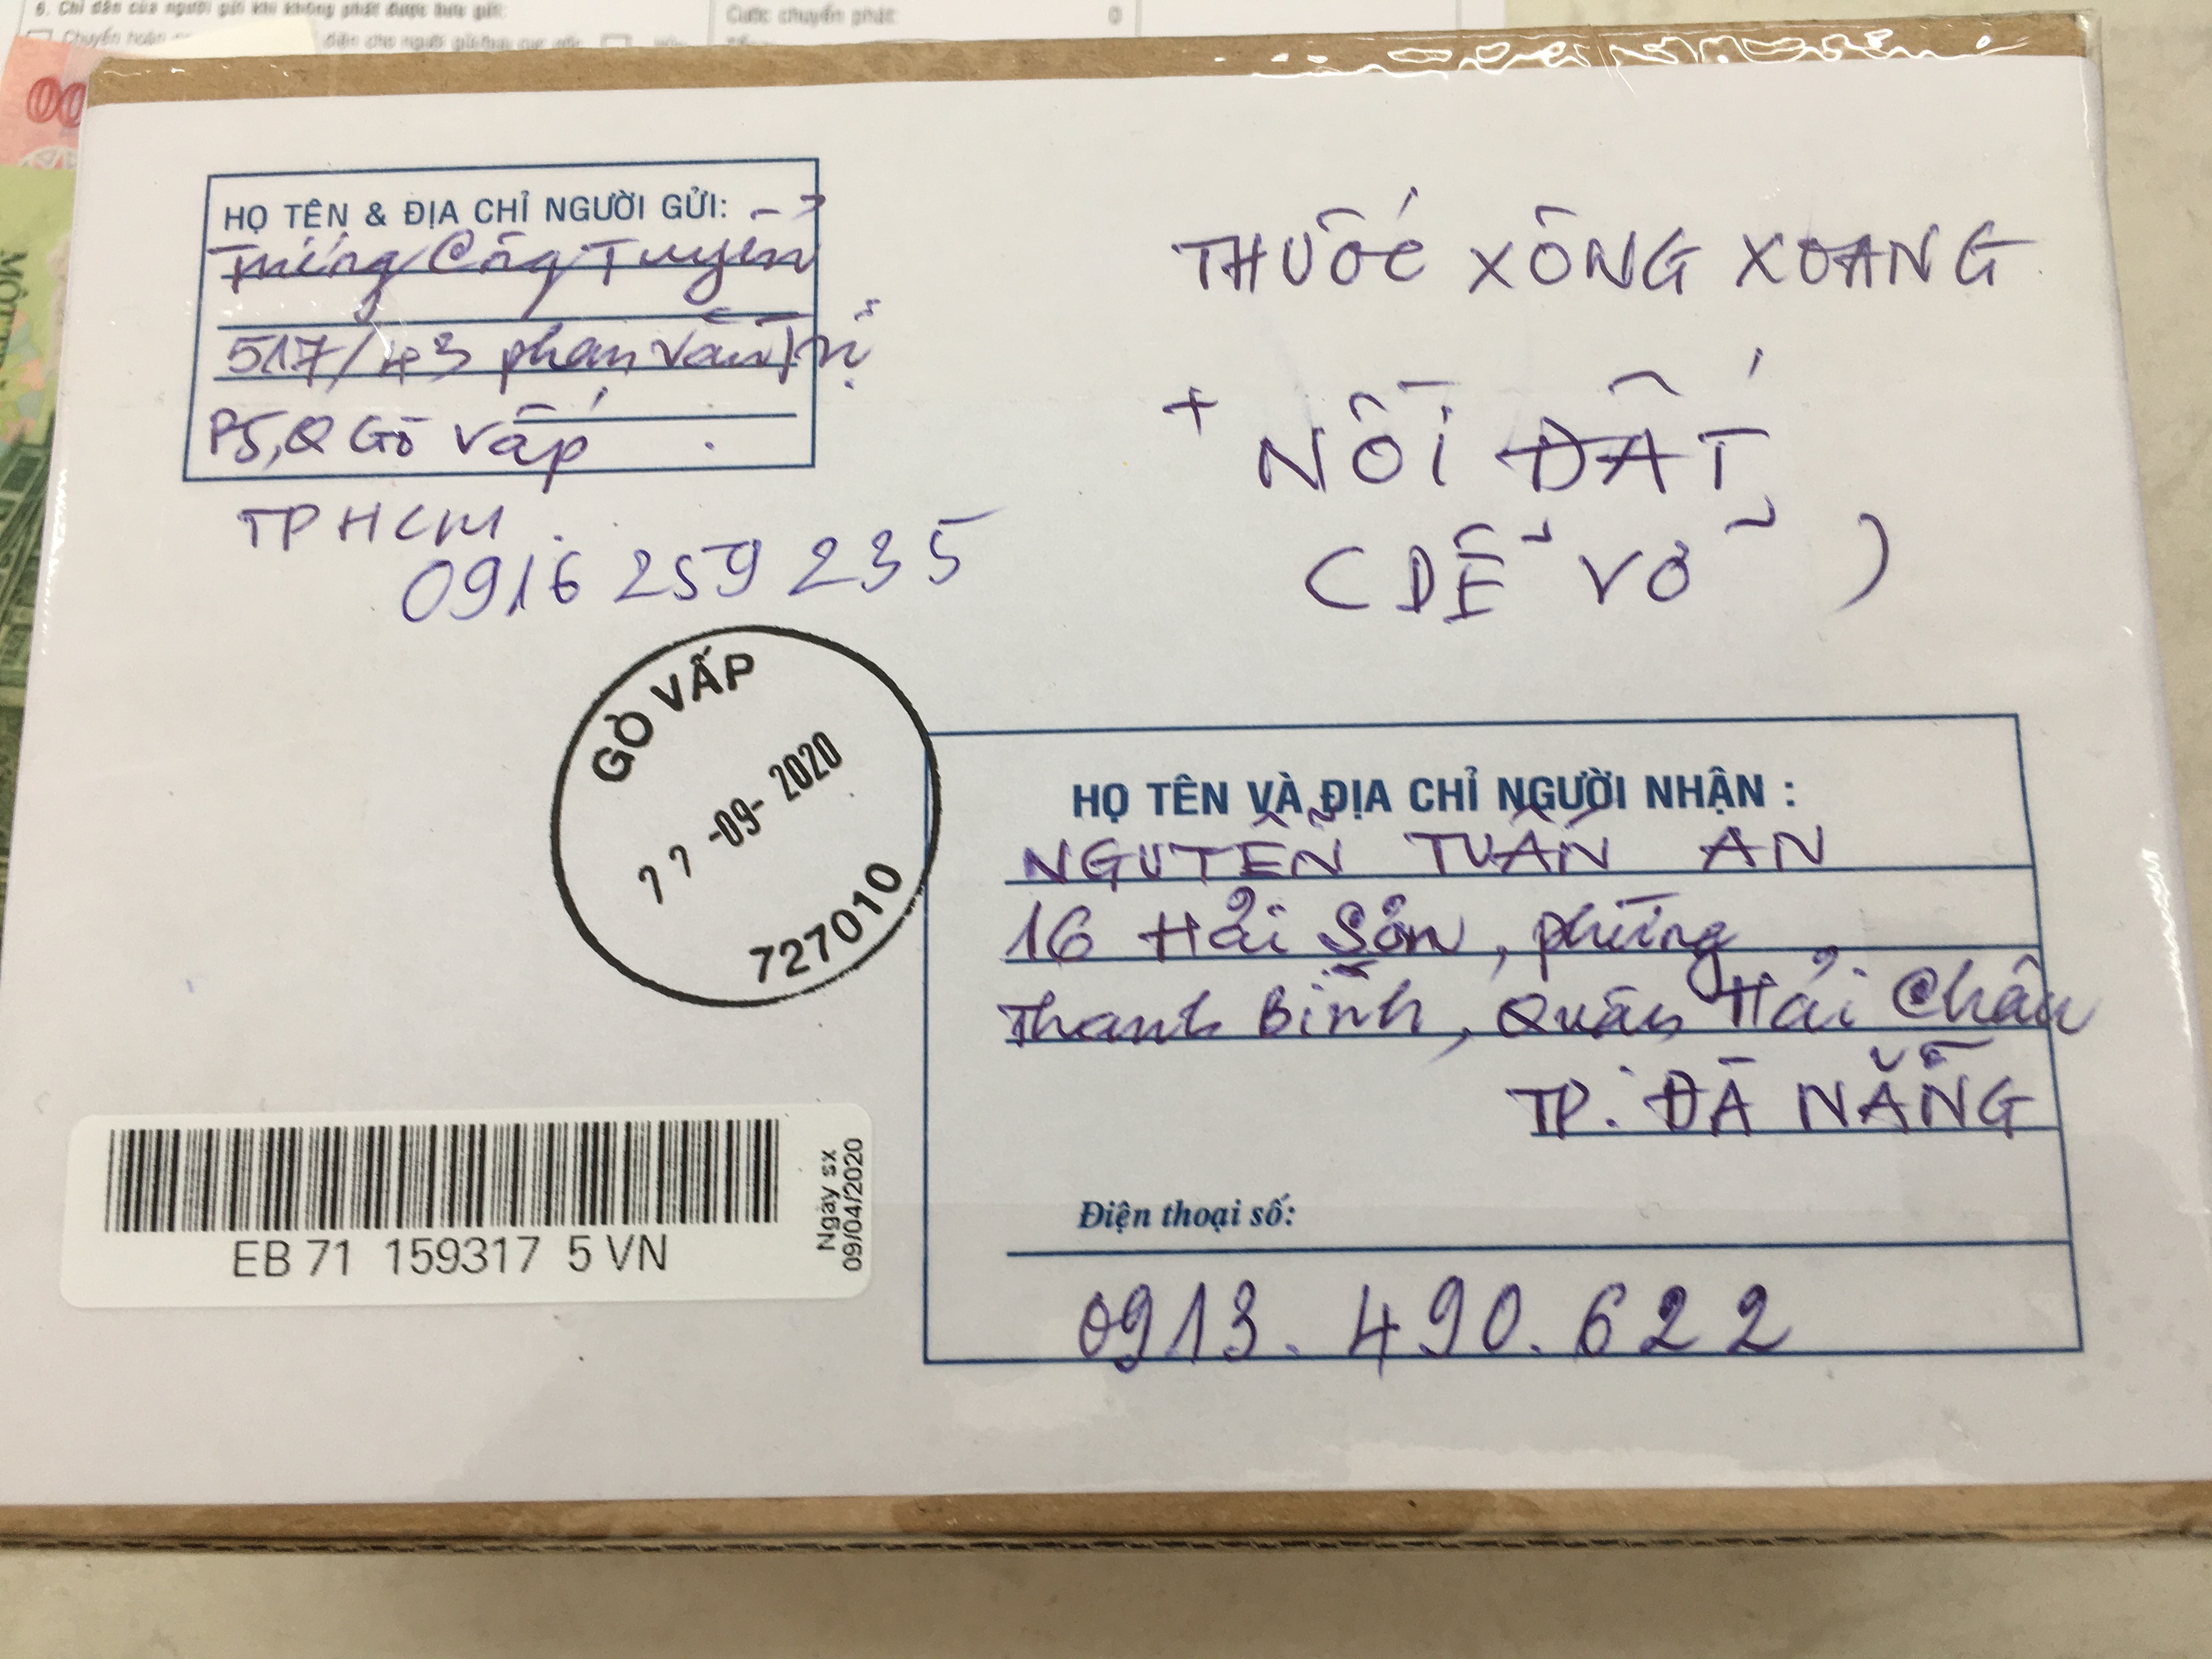 6. Chỉ dẫn của người gửi khi không phát được bưu gửi:
Chuyển hoàn
Cước chuyển phát: 0
HỌ TÊN & ĐỊA CHỈ NGƯỜI GỬI:
Công Tuyển
517/43 phan Văn Trị
P5, Q Gò Vấp
TP HCM
0916 259 235
THUỐC XÔNG XOANG
+ NỒI ĐẤT
(DỄ VỠ)
GÒ VẤP
11-09-2020
727010
HỌ TÊN VÀ ĐỊA CHỈ NGƯỜI NHẬN :
NGUYỄN TUẤN AN
16 Hải Sơn, phường
Thanh Bình, Quận Hải Châu
TP. ĐÀ NẴNG
Điện thoại số:
0913. 490. 622
EB 71 159317 5 VN
Ngày sx
09/04/2020